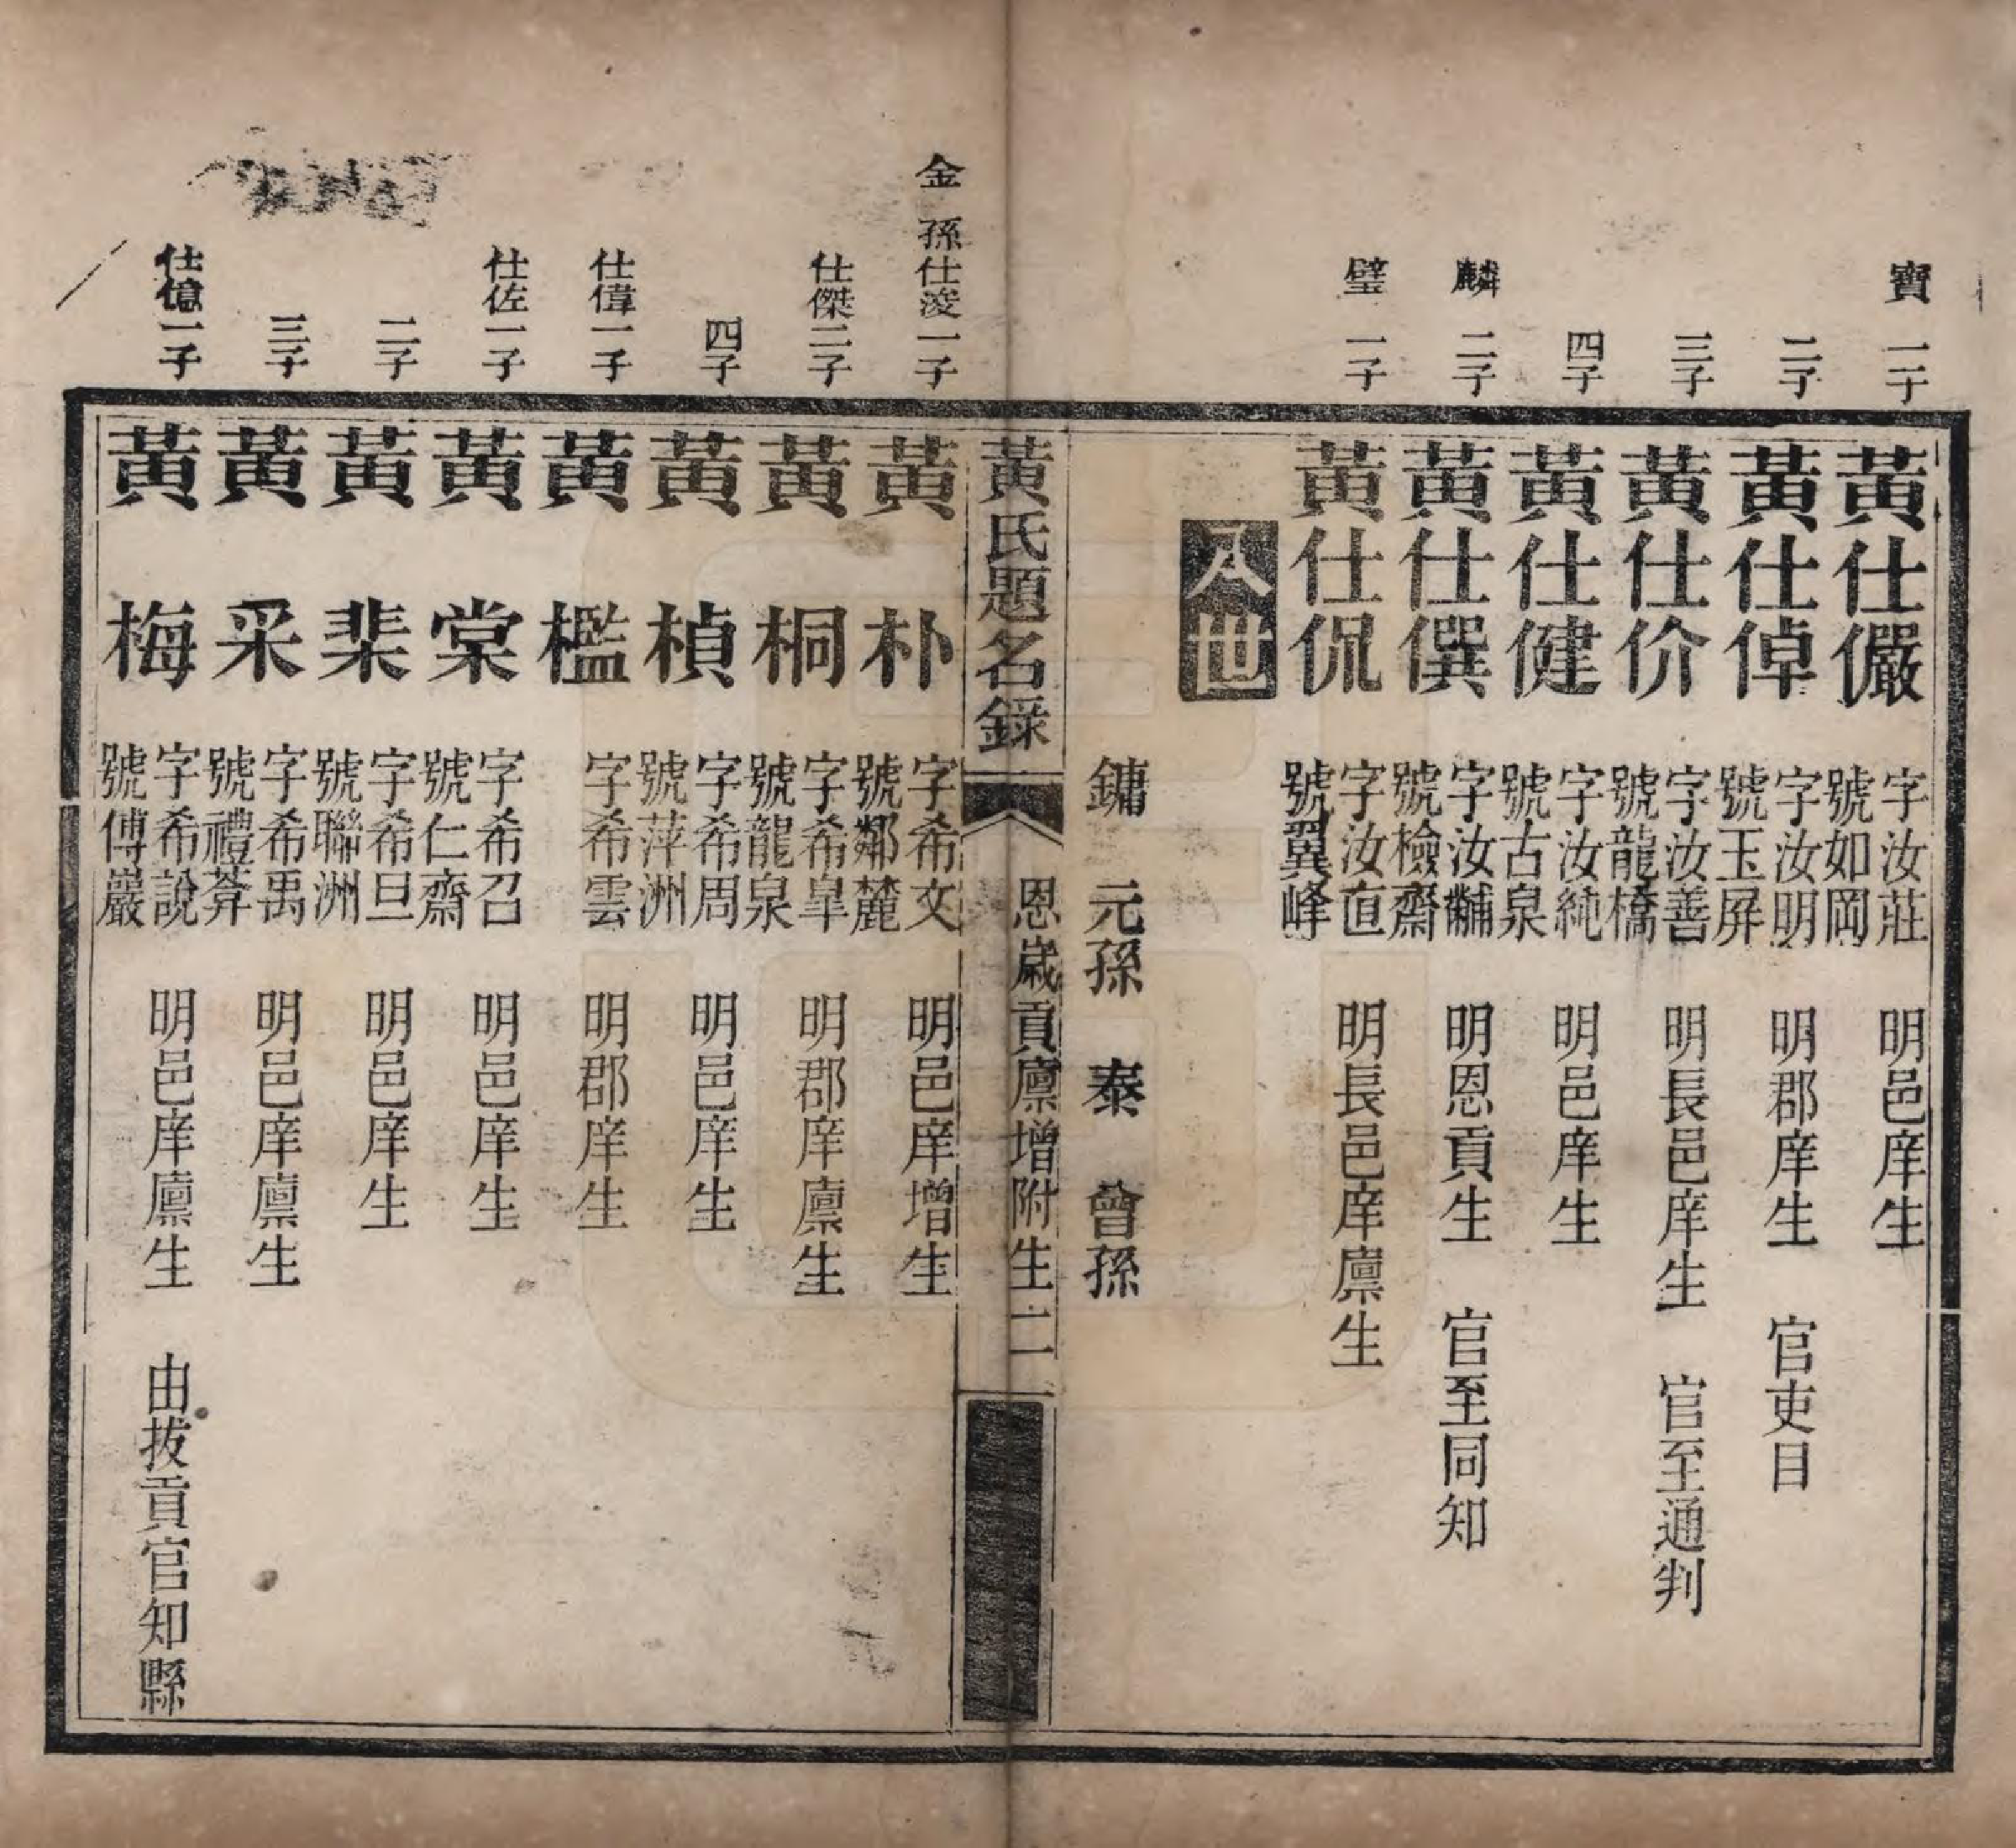 寶 一子
黃仕儼 字汝莊 號如岡 明邑庠生
二子
黃仕倬 字汝明 號玉屏 明郡庠生 官吏目
三子
黃仕价 字汝善 號龍橋 明長邑庠生 官至通判
四子
黃仕健 字汝純 號古泉 明邑庠生
麟 二子
黃仕僎 字汝黼 號檢齋 明恩貢生 官至同知
璧 一子
黃仕侃 字汝直 號翼峰 明長邑庠廩生
八世
鏞 元孫 泰 曾孫
黃氏題名錄 恩歲貢廩增附生 二
金 孫仕浚一子
黃朴 字希文 號鄰麓 明邑庠增生
仕傑二子
黃桐 字希皐 號龍泉 明郡庠廩生
四子
黃楨 字希周 號萍洲 明邑庠生
仕偉一子
黃檻 字希雲 明郡庠生
仕佐一子
黃棠 字希召 號仁齋 明邑庠生
二子
黃棐 字希旦 號聯洲 明邑庠生
三子
黃采 字希禹 號禮莽 明邑庠廩生
仕億一子
黃梅 字希說 號傅巖 明邑庠廩生 由拔貢官知縣